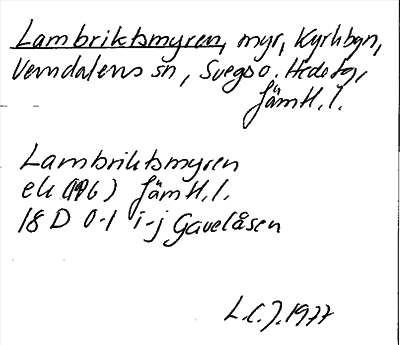 Lambriktsmyren, myr, Kyrkbyn,
Vemdalens sn, Svegs o. Hede tg,
Jämtl. l.
Lambriktsmyren
ek (196) Jämtl. l.
18 D 0-1 i-j Gavelåsen
L.C.J. 1977